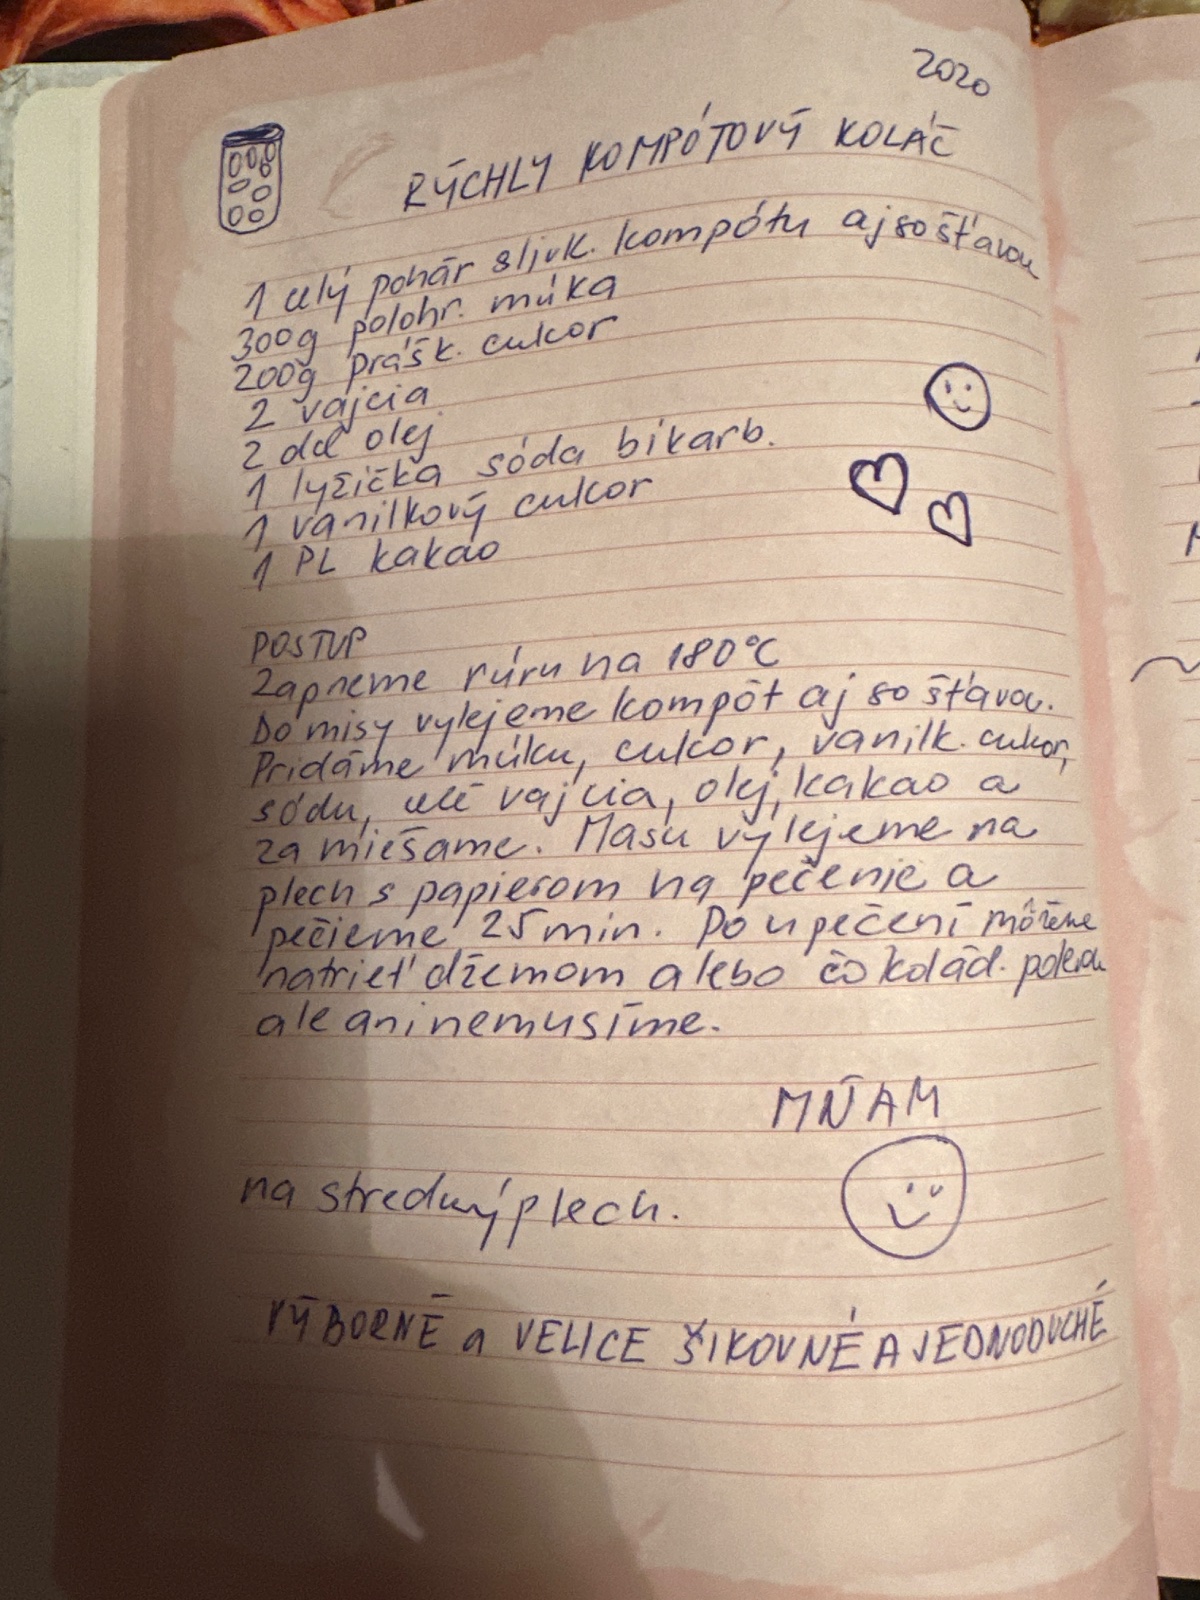 2020
RÝCHLY KOMPÓTOVÝ KOLÁČ
1 celý pohár slivk. kompótu aj so šťavou
300g polohr. múka
200g prášk. cukor
2 vajcia
2 dcl olej
1 lyžička sóda bikarb.
1 vanilkový cukor
1 PL kakao
POSTUP
Zapneme rúru na 180°C
Do misy vylejeme kompót aj so šťavou.
Pridáme múku, cukor, vanilk. cukor,
sódu, celé vajcia, olej, kakao a
zamiešame. Masu vylejeme na
plech s papierom na pečenie a
pečieme 25 min. Po upečení môžeme
natrieť džemom alebo čokolád. polevou
ale ani nemusíme.
MŇAM
na stredný plech.
VÝBORNÉ a VELICE ŠIKOVNÉ A JEDNODUCHÉ